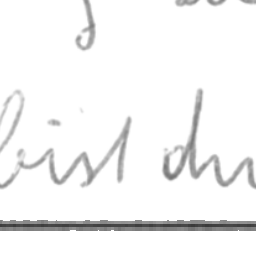 bist du